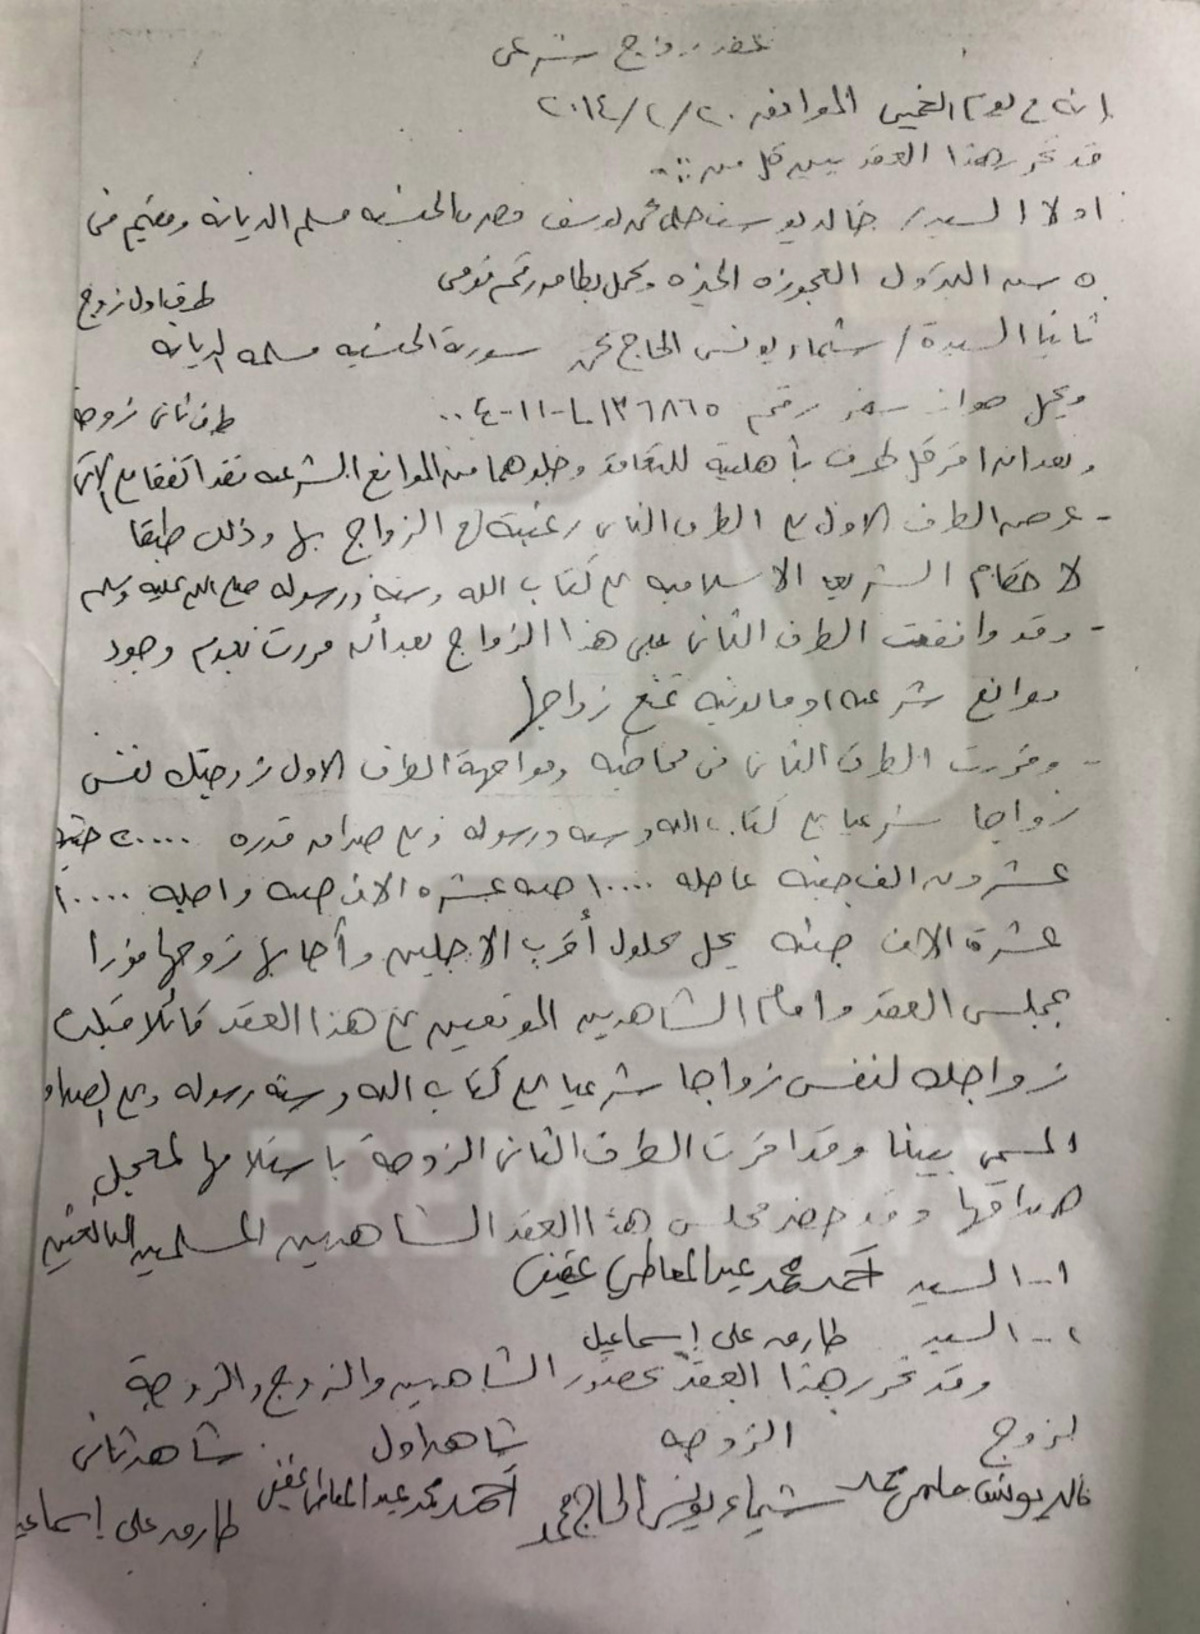 عقد زواج شرعى
انه فى يوم الخميس الموافق ٢٠/٢/٢٠١٤
قد تحرر هذا العقد بين كل من :-
اولا السيد/ خالد يوسف حلمى محمد يوسف مصرى الجنسيه مسلم الديانه ومقيم فى
٥ العجوزه الجيزه ويحمل بطاقه رقم قومى
طرف اول زوج
ثانيا السيدة/ شيماء يونس الحاج محمد سورية الجنسيه مسلمه الديانه
وتحمل جواز سفر رقم ٠٠٤-١١-L٠١٣٦٨٦٥
طرف ثانى زوجة
وبعد ان اقر كل طرف بأهليته للتعاقد وخلوهما من الموانع الشرعيه فقد اتفقا على الاتى
- عرض الطرف الاول على الطرف الثانى رغبته فى الزواج بها وذلك طبقا
لاحكام الشريعه الاسلاميه على كتاب الله وسنة ورسوله صلى الله عليه وسلم
- وقد وافقت الطرف الثانى على هذا الزواج بعد أن قررت بعدم وجود
موانع شرعيه او قانونيه تمنع زواجها
- وقررت الطرف الثانى فى مخاطبه ومواجهة الطرف الاول زوجتك نفسى
زواجا شرعيا على كتاب الله وسنه ورسوله وعلى صداق قدره ٢٠٠٠٠ جنيه
عشرون الف جنيه عاجله ١٠٠٠٠ جنيه عشره الاف جنيه واجله ١٠٠٠٠
عشرة الاف جنيه يحل بحلول أقرب الاجلين وأجابها زوجها فورا
بمجلس العقد وامام الشاهدين الموقعين على هذا العقد قائلا قبلت
زواجك لنفسى زواجا شرعيا على كتاب الله وسنة رسوله وعلى الصداق
المسمى بيننا وقد اقرت الطرف الثانى الزوجة باستلامها لمعجل
صداقها وقد حضر مجلس هذا العقد الشاهدين المسلمين البالغين
١-- السيد أحمد محمد عبد المعاطى عفيفى
٢-- السيد طارق على إسماعيل
وقد تحرر هذا العقد بحضور الشاهدين والزوج والزوجة
الزوج الزوجه شاهد اول شاهد ثانى
خالد يوسف حلمى محمد شيماء يونس الحاج محمد أحمد محمد عبد المعاطى عفيفى طارق على إسماعيل